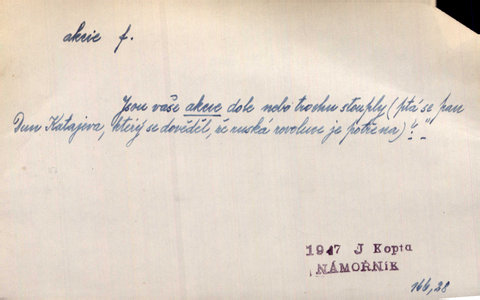 akcie f.
Jsou vaše akcie dole nebo trochu stouply (ptá se pan
Dun Katajeva, který se dověděl, že ruská revoluce je potřena)?"
1947 J Kopta
NÁMOŘNÍK
166,28